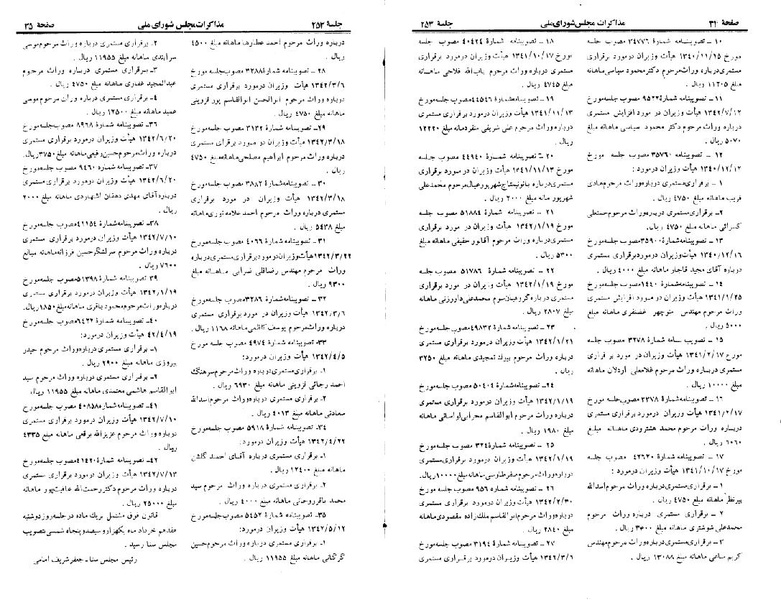 صفحهٔ ۳۴ مذاکرات مجلس شورای ملی جلسهٔ ۲۵۳
۱۰ ـ تصویبنامه شمارهٔ ۳۴۷۷۶ مصوب جلسه
مورخ ۱۳۴۰/۱۱/۲۵ هیأت وزیران درمورد برقراری
مستمری درباره وراث مرحوم دکتر محمود سیاسی ماهانه
مبلغ ۱۱۲۰۵ ریال.
۱۱ ـ تصویبنامه شمارهٔ ۹۵۲۲ مصوب جلسه مورخ
۱۳۴۲/۷/۱۲ هیأت وزیران در مورد افزایش مستمری
درباره وراث مرحوم دکتر محمود سیاسی ماهانه مبلغ
۵۰۷۰ ریال.
۱۲ ـ تصویبنامه شمارهٔ ۳۵۷۶۰ مصوب جلسه مورخ
۱۳۴۰/۱۲/۱۲ هیأت وزیران درمورد :
۱ـ برقراری مستمری درباره وراث مرحوم هادی
غریب ماهانه مبلغ ۴۷۵۰ ریال.
۲ـ برقراری مستمری درباره وراث مرحوم مصطفی
کسرائی ماهانه مبلغ ۴۷۵۰ ریال.
۱۳ ـ تصویبنامه شمارهٔ ۳۵۹۰۰ مصوب جلسه مورخ
۱۳۴۰/۱۲/۱۶ هیأت وزیران درمورد برقراری مستمری
درباره آقای مجید قاجار ماهانه مبلغ ۴۰۰۰ ریال.
۱۴ ـ تصویبنامه شمارهٔ ۱۴۴۰ مصوب جلسه مورخ
۱۳۴۱/۱/۲۵ هیأت وزیران درمورد افزایش مستمری
وراث مرحوم مهندس منوچهر غضنفری ماهانه مبلغ
۵۰۰۰ ریال.
۱۵ ـ تصویبنامه شمارهٔ ۳۲۷۸ مصوب جلسه مورخ
۱۳۴۱/۲/۱۷ هیأت وزیران در مورد برقراری
مستمری درباره وراث مرحوم غلامعلی اردلان ماهانه
مبلغ ۱۰۰۰۰ ریال.
۱۶ ـ تصویبنامه شمارهٔ ۲۳۷۸ مصوب جلسه مورخ
۱۳۴۱/۲/۱۷ هیأت وزیران درمورد برقراری مستمری
درباره وراث مرحوم محمد هشترودی ماهانه مبلغ
ریال.
۱۷ ـ تصویبنامه شمارهٔ ۴۲۶۳۰ مصوب جلسه
مورخ ۱۳۴۱/۱۰/۱۷ هیأت وزیران درمورد :
۱ـ برقراری مستمری درباره وراث مرحوم اسدالله
ماهانه مبلغ ۴۷۵۰ ریال.
۲ـ برقراری مستمری درباره وراث مرحوم
صفدعلی شوشتری ماهانه مبلغ ۳۶۰۰ ریال.
۳ـ برقراری مستمری درباره وراث مرحوم مهندس
کریم ساعی ماهانه مبلغ ۱۳۰۸۸ ریال.
۱۸ ـ تصویبنامه شمارهٔ ۴۰۴۲۴ مصوب جلسه
مورخ ۱۳۴۱/۱۰/۱۷ هیأت وزیران درمورد برقراری
مستمری درباره وراث مرحوم باب‌الله فلاحی ماهانه
مبلغ ۴۷۴۵ ریال.
۱۹ ـ تصویبنامه شمارهٔ ۴۴۵۴۶ مصوب جلسه مورخ
۱۳۴۱/۱۱/۱۳ هیأت وزیران در مورد برقراری مستمری
درباره وراث مرحوم علی شریفی ماهانه مبلغ ۱۲۲۲۰
ریال.
۲۰ ـ تصویبنامه شمارهٔ ۴۴۹۴۰ مصوب جلسه
مورخ ۱۳۴۱/۱۱/۱۳ هیأت وزیران در مورد برقراری
مستمری درباره بانو نیمتاج شهرپور عیال مرحوم محمدعلی
شهرپور ماهانه مبلغ ۲۰۰۰ ریال.
۲۱ ـ تصویبنامه شمارهٔ ۵۱۸۸۴ مصوب جلسه
مورخ ۱۳۴۲/۱/۱۹ هیأت وزیران درمورد برقراری
مستمری درباره وراث مرحوم آقاور حقیقی ماهانه مبلغ
۵۳۰۰ ریال.
۲۲ ـ تصویبنامه شمارهٔ ۵۱۷۸۶ مصوب جلسه
مورخ ۱۳۴۲/۱/۱۹ هیأت وزیران درمورد برقراری
مستمری درباره محمدعلی داورزنی ماهانه
مبلغ ۲۸۰۷ ریال.
۲۳ ـ تصویبنامه شمارهٔ ۴۹۸۳۲ مصوب جلسه مورخ
۱۳۴۲/۱/۲۱ هیأت وزیران در مورد برقراری مستمری
درباره وراث مرحوم بیوک تمجیدی ماهانه مبلغ ۳۷۵۰
ریال.
۲۴ ـ تصویبنامه شمارهٔ ۵۰۴۰۴ مصوب جلسه مورخ
۱۳۴۲/۱/۱۹ هیأت وزیران درمورد برقراری مستمری
درباره وراث مرحوم ابوالقاسم محرابی ماهانه
مبلغ ۱۹۸۰ ریال.
۲۵ ـ تصویبنامه شمارهٔ ۳۲۴ مصوب جلسه مورخ
۱۳۴۲/۱/۱۹ هیأت وزیران درمورد برقراری مستمری
درباره وراث مرحوم صفرطاوسی ماهانه مبلغ ۱۰۰۰۰ ریال.
۲۶ ـ تصویبنامه شمارهٔ ۹۵۶ مصوب جلسه مورخ
۱۳۴۲/۲/۳۰ هیأت وزیران درمورد برقراری مستمری
درباره وراث مرحوم ابوالقاسم ملک‌زاده مقصودی ماهانه
مبلغ ۲۸۴۰ ریال.
۲۷ ـ تصویبنامه شمارهٔ ۳۱۹۴ مصوب جلسه مورخ
۱۳۴۲/۳/۶ هیأت وزیران درمورد برقراری مستمری
جلسهٔ ۲۵۳ مذاکرات مجلس شورای ملی صفحهٔ ۳۵
درباره وراث مرحوم احمد عطارها ماهانه مبلغ ۴۵۰۰
ریال.
۲۸ ـ تصویبنامه شمارهٔ ۳۲۸۸ مصوب جلسه مورخ
۱۳۴۲/۳/۶ هیأت وزیران درمورد برقراری مستمری
درباره وراث مرحوم ابوالحسن ابوالقاسم پور قزوینی
ماهانه مبلغ ۴۷۵۰ ریال.
۲۹ ـ تصویبنامه شمارهٔ ۳۱۳۲ مصوب جلسه مورخ
۱۳۴۲/۳/۱۸ هیأت وزیران درمورد برقرای مستمری
درباره وراث مرحوم ابراهیم مصلحی ماهانه مبلغ ۴۷۵۰
ریال.
۳۰ ـ تصویبنامه شمارهٔ ۳۸۸۲ مصوب جلسه مورخ
۱۳۴۲/۳/۱۸ هیأت وزیران در مورد برقراری
مستمری درباره وراث مرحوم احمد علامه نوری ماهانه
مبلغ ۵۴۳۸ ریال.
۳۱ ـ تصویبنامه شمارهٔ ۴۰۶۶ مصوب جلسه مورخ
۱۳۴۲/۳/۲۲ هیأت وزیران درمورد برقراری مستمری درباره
وراث مرحوم مهندس رضاقلی ضرابی ماهانه مبلغ
۹۳۰۰ ریال.
۳۲ ـ تصویبنامه شمارهٔ ۳۲۸۶ مصوب جلسه مورخ
۱۳۴۲/۳/۶ هیأت وزیران درمورد برقراری مستمری
درباره وراث مرحوم یوسف کاظمی ماهانه مبلغ ۱۱۹۸ ریال.
۳۳ ـ تصویبنامه شمارهٔ ۴۹۷۴ مصوب جلسه مورخ
۱۳۴۲/۴/۵ هیأت وزیران درمورد :
۱ـ برقراری مستمری درباره وراث مرحوم سرهنگ
احمد رجائی قزوینی ماهانه مبلغ ۶۹۳۰ ریال.
۲ـ برقراری مستمری درباره وراث مرحوم اسدالله
سعادتی ماهانه مبلغ ۴۰۱۳ ریال.
۳۴ ـ تصویبنامه شمارهٔ ۵۹۱۸ مصوب جلسه مورخ
۱۳۴۲/۴/۲۲ هیأت وزیران درمورد:
۱ـ برقراری مستمری درباره آقای احمد گلشن
ماهانه مبلغ ۱۲۴۰۰ ریال.
۲ـ برقراری مستمری درباره وراث مرحوم سید
محمد باقر روحانی ماهانه مبلغ ۴۰۰۰ ریال.
۳۵ـ تصویبنامه شمارهٔ ۵۴۵۲ مصوب جلسه مورخ
۱۳۴۲/۵/۱۲ هیأت وزیران درمورد:
۱ـ برقراری مستمری درباره وراث مرحوم حسین
گرگانی ماهانه مبلغ ۱۱۹۵۵ ریال.
۲ـ برقراری مستمری درباره وراث مرحوم موسی
سرابندی ماهانه مبلغ ۱۱۹۵۵ ریال.
۳ـ برقراری مستمری درباره وراث مرحوم
عبدالمجید غفاری ماهانه مبلغ ۴۷۵۰ ریال.
۴ـ برقراری مستمری درباره وراث مرحوم موسی
عمید ماهانه مبلغ ۱۲۵۰۰ ریال.
۳۶ـ تصویبنامه شمارهٔ ۸۹۶۸ مصوب جلسه مورخ
۱۳۴۲/۶/۲۰ هیأت وزیران درمورد برقراری مستمری
درباره وراث مرحوم حسین رفیعی ماهانه مبلغ ۳۷۵۰ ریال.
۳۷ـ تصویبنامه شمارهٔ ۹۴۶۰ مصوب جلسه مورخ
۱۳۴۲/۶/۲۰ هیأت وزیران درمورد برقراری مستمری
درباره آقای مهدی دهقان اشهردی ماهانه مبلغ ۲۰۰۰
ریال.
۳۸ـ تصویبنامه شمارهٔ ۴۱۱۵۴ مصوب جلسه مورخ
۱۳۴۲/۷/۱۰ هیأت وزیران درمورد برقراری مستمری
درباره وراث مرحوم سرلشگر حسین فرزانه ماهانه مبلغ
۷۶۰۰ ریال.
۳۹ ـ تصویبنامه شمارهٔ ۵۱۳۹۸ مصوب جلسه مورخ
۱۳۴۲/۱/۱۹ هیأت وزیران درمورد برقراری مستمری
درباره وراث مرحوم محمود باقری ماهانه مبلغ ۱۸۵۰ ریال.
۴۰ ـ تصویبنامه شمارهٔ ۶۴۲۲ مصوب جلسه مورخ
۴۲/۴/۱۹ هیأت وزیران درمورد:
۱ـ برقراری مستمری درباره وراث مرحوم حیدر
پیروزی ماهانه مبلغ ۲۹۰۰ ریال.
۲ـ برقراری مستمری درباره وراث مرحوم سید
ابوالقاسم هاشمی محمدی ماهانه مبلغ ۱۱۹۵۵ ریال.
۴۱ـ تصویبنامه شمارهٔ ۴۰۸۵۸ مصوب جلسه مورخ
۱۳۴۲/۷/۱۰ هیأت وزیران درمورد برقراری مستمری
درباره وراث مرحوم عزیزالله برقعی ماهانه مبلغ ۴۳۳۵
ریال.
۴۲ـ تصویبنامه شمارهٔ ۴۱۴۲۰ مصوب جلسه مورخ
۱۳۴۲/۷/۱۳ هیأت وزیران درمورد برقراری مستمری
درباره وراث مرحوم دکتر رحمت‌الله عاقبت‌پور ماهانه
مبلغ ۲۵۰۰۰ ریال.
قانون فوق مشتمل بر یک ماده در جلسه روز دوشنبه
هفدهم خرداد ماه یکهزار و سیصد و پنجاه شمسی بتصویب
مجلس سنا رسید.
رئیس مجلس سنا ـ جعفر شریف امامی